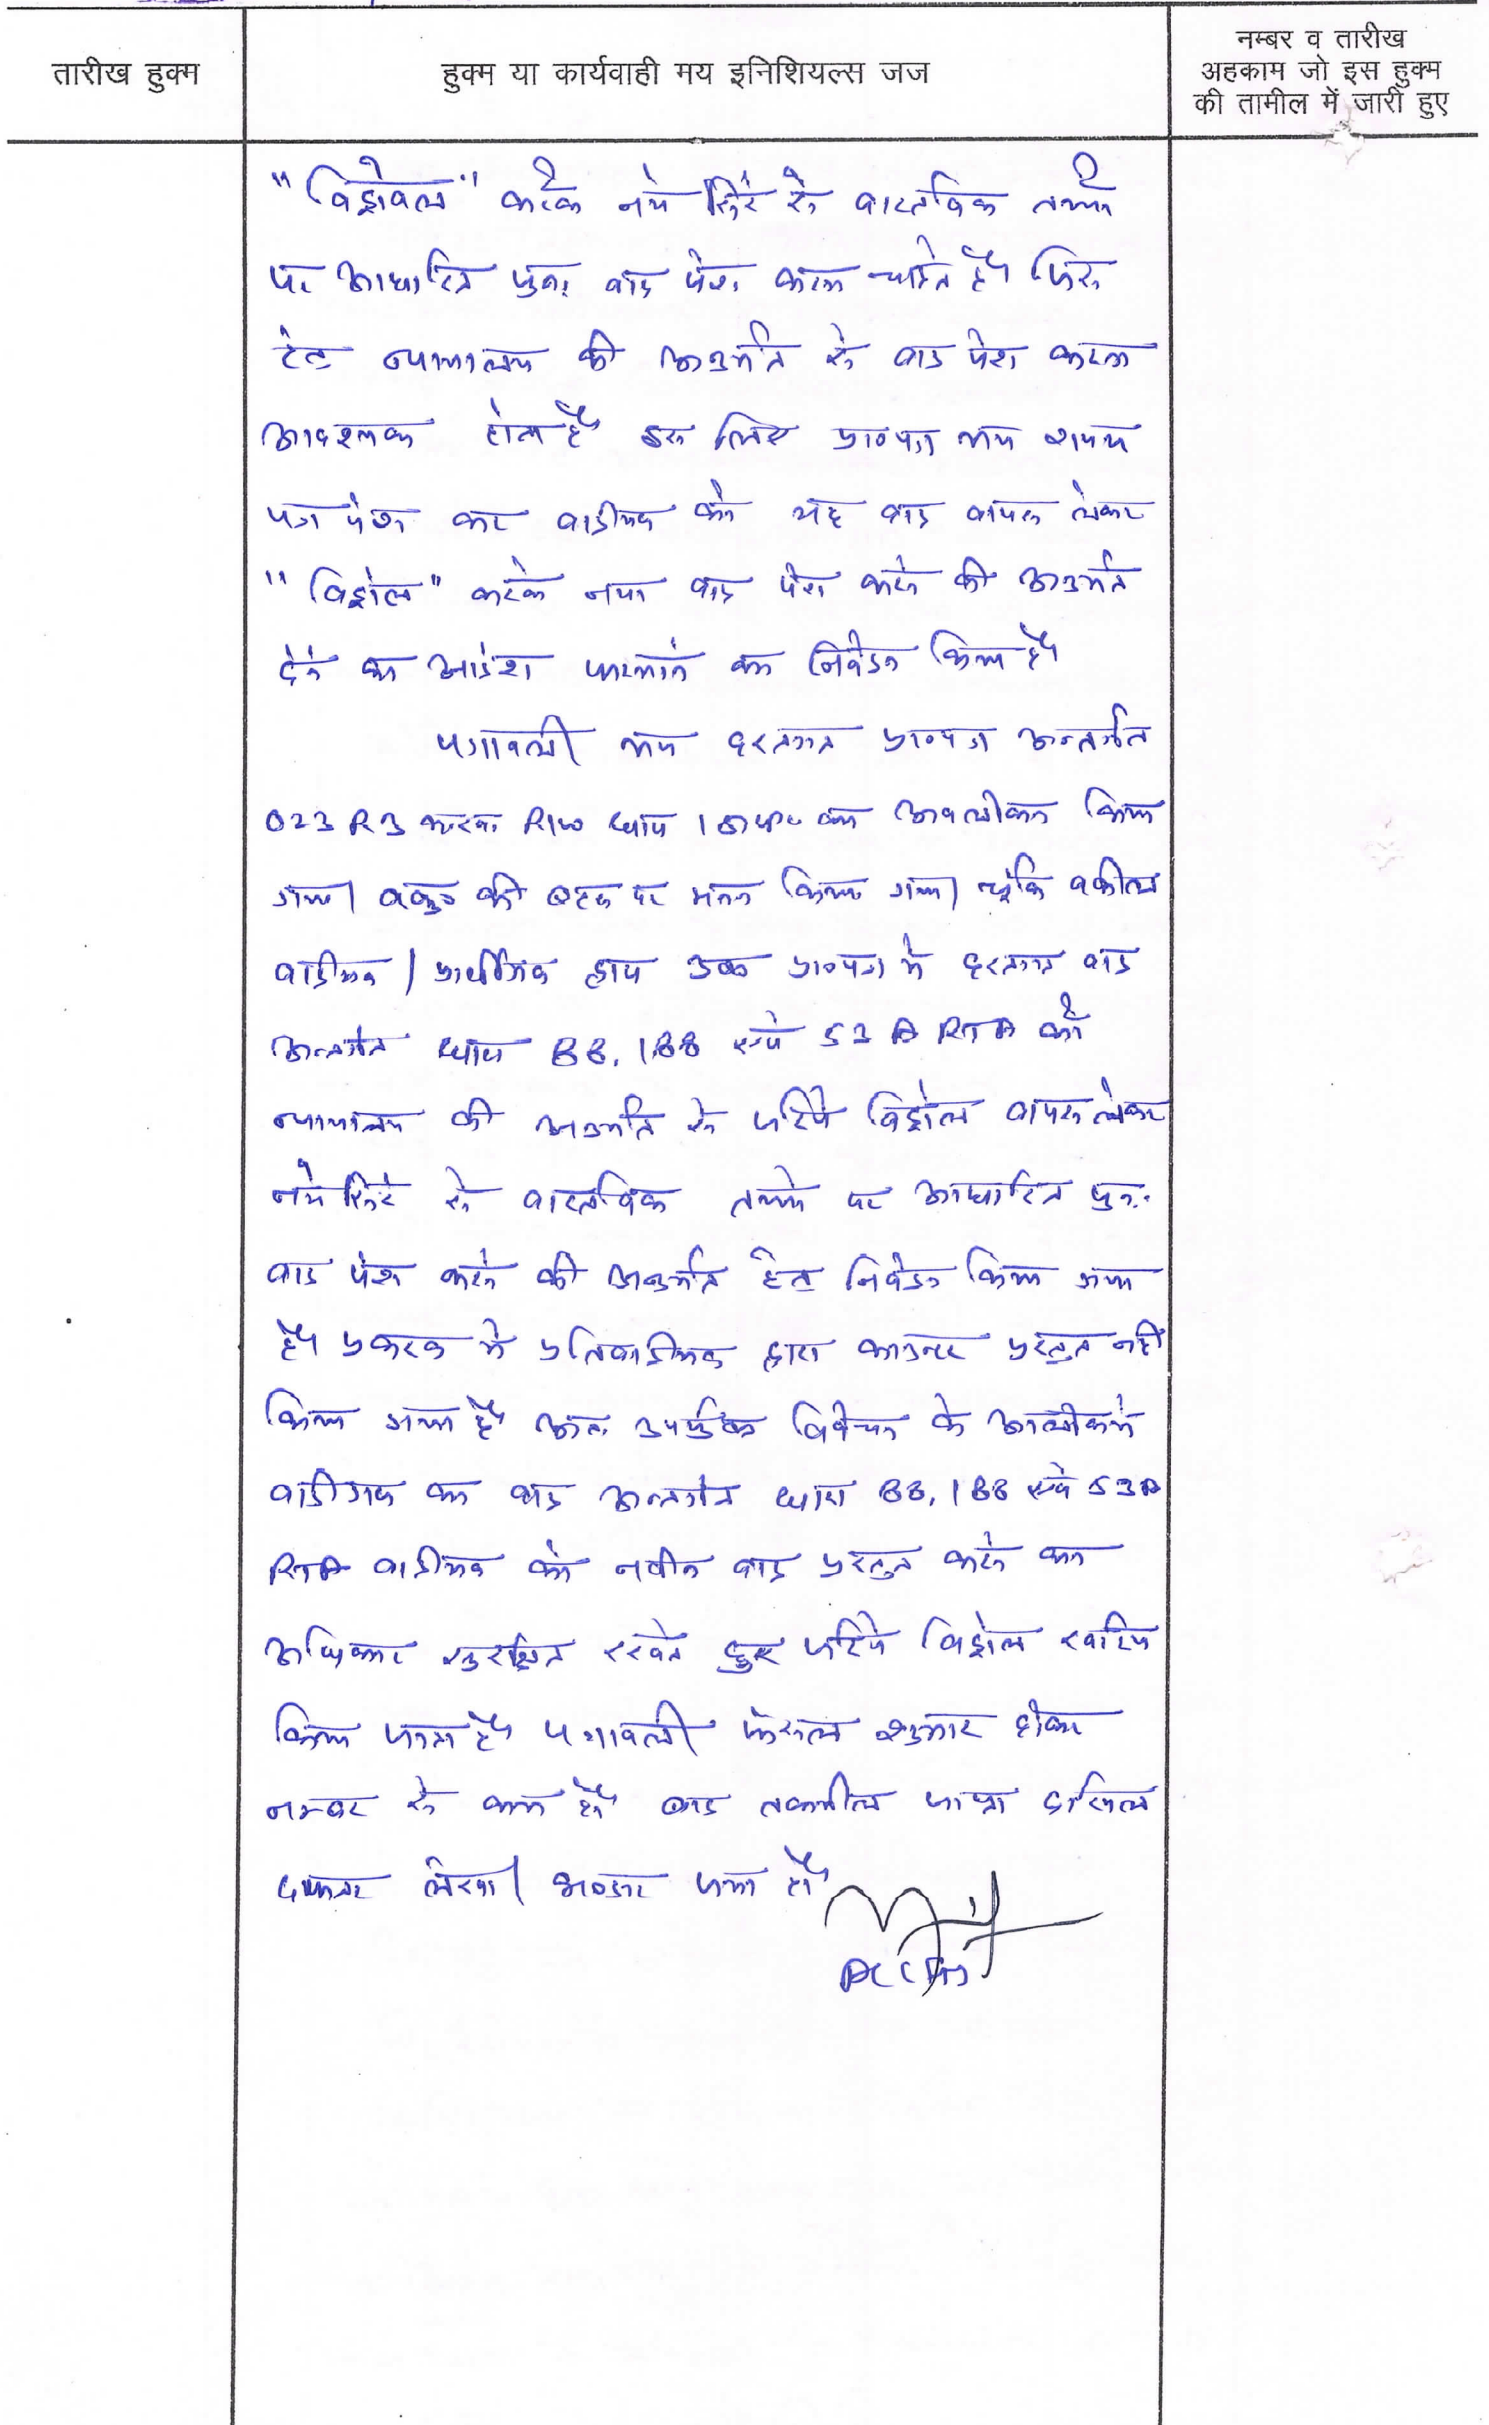 तारीख हुक्म
हुक्म या कार्यवाही मय इनिशियल्स जज
नम्बर व तारीख
अहकाम जो इस हुक्म
की तामील में जारी हुए
"विड्रोवल" करके नये सिरे से वास्तविक तथ्यों
पर आधारित पुनः वाद पेश करना चाहते है। जिस
हेतु न्यायालय की अनुमति से वाद पेश करना
आवश्यक होता है इस लिए प्रा०पत्र मय शपथ
पत्र पेश कर वादीगण को यह वाद वापस लेकर
"विड्रोल" करके नया वाद पेश करने की अनुमति
देने का आदेश फरमाने का निवेदन किया है।
पत्रावली मय दस्तगत प्रा०पत्र अन्तर्गत
O23 R3 R/w धारा 151 CPC का अवलोकन किया
गया। वकुल की बहस पर मनन किया गया। चूंकि वकील
वादीगण / प्रार्थीगण द्वारा उक्त प्रा०पत्र मे दस्तगत वाद
अन्तर्गत धारा 88, 188 एवं 53 A RTA को
न्यायालय की अनुमति से जरिये विड्रोल वापस लेकर
नये सिरे से वास्तविक तथ्यो पर आधारित पुनः
वाद पेश करने की अनुमति हेतु निवेदन किया गया
है। प्रकरण मे प्रतिवादीगण द्वारा काउन्टर प्रस्तुत नही
किया गया है अतः उपर्युक्त विवेचन के आलोक मे
वादीगण का वाद अन्तर्गत धारा 88, 188 एवं 53A
RTA वादीगण को नवीन वाद प्रस्तुत करने का
अधिकार सुरक्षित रखते हुए जरिये विड्रोल खारिज
किया जाता है। पत्रावली फैसल शुमार होकर
नम्बर से कम हो। बाद तकमील जाप्ता दाखिल
दफ्तर लेखा भण्डार जमा हो।